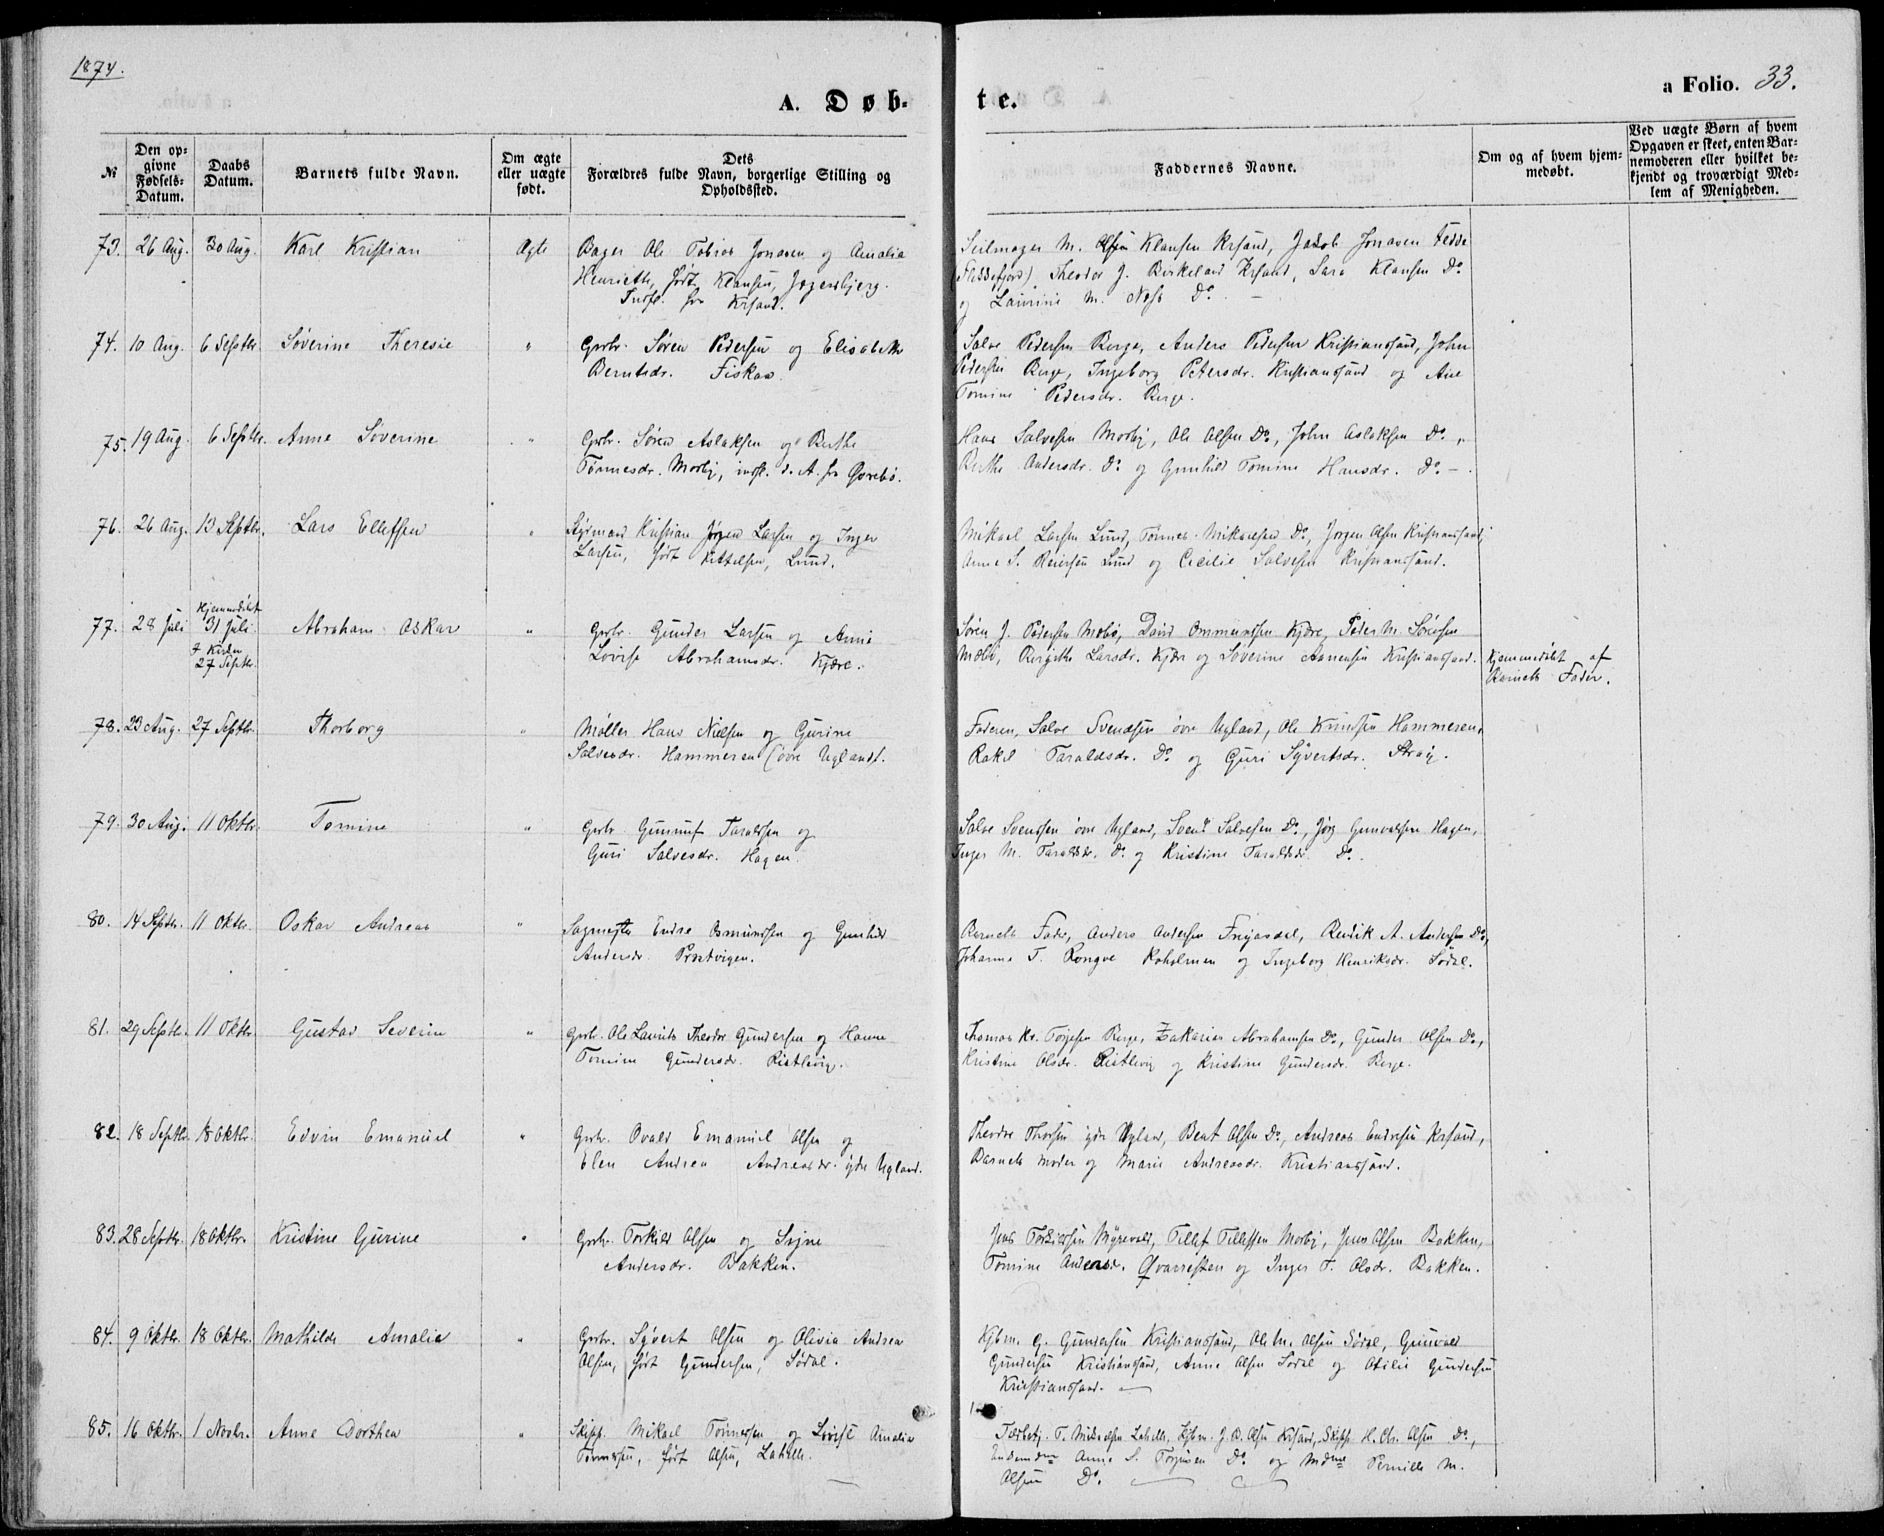 1874.
A. Døb-
te.
a Folio. 33.
№
Den op-
givne
Fødsels-
Datum.
Daabs
Datum.
Barnets fulde Navn.
Om ægte
eller uægte
født.
Dets
Forældres fulde Navn, borgerlige Stilling og
Opholdssted.
Faddernes Navne.
Om og af hvem hjem-
medøbt.
Ved uægte Børn af hvem
Opgaven er skeet, enten Bar-
nemoderen eller hvilket be-
kjendt og troværdigt Med-
lem af Menigheden.
73. 26 Aug. 30 Aug. Karl Kristian Ægte Bager Ole Tobias Jonasen og Amalia
Henriette, født Klausen, Jegersbjerg.
Indfl. fra Krsand.
Seilmager M. Olsen Klausen Krsand, Jakob Jonasen Fedde
(Fleddefjord), Theodor J. Birkeland Krsand, Sara Klausen Do
og Laurine M. Næss Do. —
74. 10 Aug. 6 Septbr. Søverine Theresie " Grbr. Søren Pedersen og Elisabeth
Berntsdr. Fiskaa.
Salve Pedersen Berge, Anders Pedersen Kristianssand, John
Pedersen Berge, Ingeborg Petersdr. Kristianssand og Ane
Tomine Pedersdr. Berge.
75. 19 Aug. 6 Septbr. Anne Søverine " Grbr. Søren Aslaksen og Berthe
Tønnesdr. Mosby, indfl. d. A. fra Øvrebø.
Hans Salvesen Mosby, Ole Olsen Do, John Aslaksen Do,
Berthe Andersdr. Do og Gunhild Tomine Hansdr. Do. —
76. 26 Aug. 13 Septbr. Lars Ellefsen " Styrmand Kristian Jørgen Larsen og Inger
Larsen, født Kittelsen, Lund.
Mikael Larsen Lund, Tønnes Mikaelsen Do, Jørgen Olsen Kristianssand,
Anne S. Reiersen Lund og Cecilie Salvesen Kristianssand.
77. 28 Juli Hjemmedøbt
31 Juli
I Kirken
27 Septbr. Abraham Oskar " Grbr. Gunder Larsen og Anne
Lovise Abrahamsdr. Kjære.
Søren J. Pedersen Mæbø, David Ommundsen Kjære, Peder M. Sørensen
Mæbø, Birgithe Larsdr. Kjære og Søverine Aanensen Kristianssand.
Hjemmedøbt af
Barnets Fader.
78. 23 Aug. 27 Septbr. Thorborg " Møller Hans Nielsen og Gurine
Salvesdr. Hammeren (øvre Ugland).
Faderen, Salve Svendsen øvre Ugland, Ole Knudsen Hammeren,
Rakel Taraldsdr. Do og Guri Syvertsdr. Stray.
79. 30 Aug. 11 Oktbr. Tomine " Grbr. Gunuf Taraldsen og
Guri Salvesdr. Hagen.
Salve Svendsen øvre Ugland, Svend Salvesen Do, Jørg Gunvaldsen Hagen,
Inger M. Taraldsdr. Do og Kristine Taraldsdr. Do.
80. 14 Septbr. 11 Oktbr. Oskar Andreas " Sagmester Endre Osmundsen og Gunhild
Andersdr. Prestvigen.
Barnets Fader, Anders Andersen Frigasdal, Rudik A. Andersen Do,
Johanne T. Rongve Roholmen og Ingeborg Henriksdr. Sødal.
81. 29 Septbr. 11 Oktbr. Gustav Severin " Grbr. Ole Laurits Theodor Gundersen og Hanne
Tomine Gundersdr. Kistlevig.
Thomas Kr. Torjesen Berge, Zakarias Abrahamsen Do, Gunder Olsen Do,
Kristine Olsdr. Kistlevig og Kristine Gundersdr. Berge.
82. 18 Septbr. 18 Oktbr. Edvin Emanuel " Grbr. Ovald Emanuel Olsen og
Elen Andrea Andreasdr. ytre Ugland.
Theodor Thorsen ytre Ugland, Bent Olsen Do, Andreas Endresen Krsand,
Barnets Moder og Marie Andreasdr. Kristianssand.
83. 28 Septbr. 18 Oktbr. Kristine Gurine " Grbr. Torkild Olsen og Signe
Andersdr. Bakken.
Jens Torkildsen Myrevold, Tellef Tellefsen Mosby, Jens Olsen Bakken,
Tomine Andersdr. Qvarnesten og Inger T. Olsdr. Bakken.
84. 9 Oktbr. 18 Oktbr. Mathilde Amalie " Grbr. Syvert Olsen og Olivia Andrea
Olsen, født Gundersen, Sødal.
Kjbm. G. Gundersen Kristianssand, Ole M. Olsen Sødal, Gunvald
Gundersen Kristianssand, Anne Olsen Sødal og Otilie Gundersen
Kristianssand. —
85. 16 Oktbr. 1 Novbr. Anne Dorthea " Skipp. Mikael Tønnessen og Lovise Amalia
Tønnessen, født Olsen, Lahelle.
T. Mikaelsen Lahelle, Kjbm. J. B. Olsen Krsand, Skipp. H. Chr. Olsen Do,
Anne S. Torjusen Do og Mdme Pernille M.
Olsen Do. —